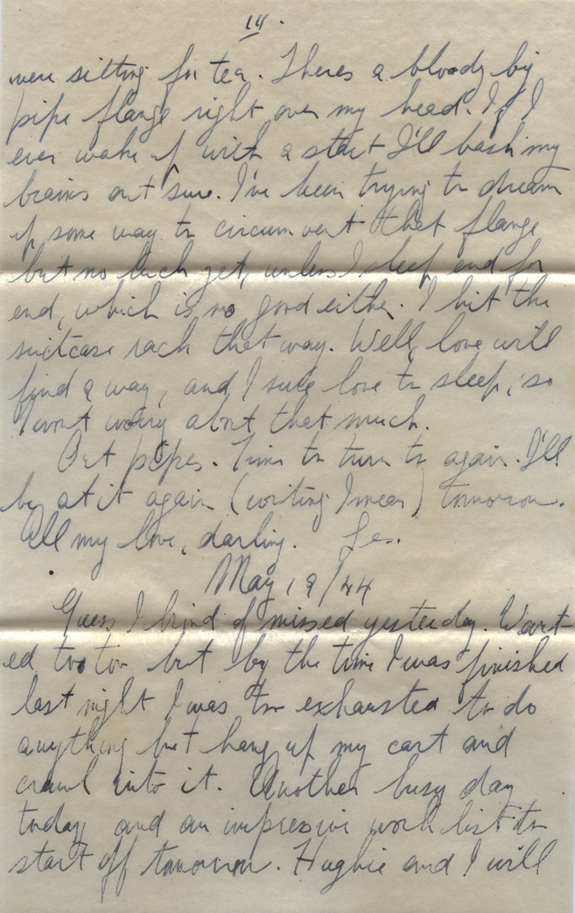 14.
were sitting for tea. Theres a bloody big
pipe flange right over my head. If I
ever wake up with a start I'll bash my
brains out sure. I've been trying to dream
up some way to circumvent that flange
but no luck yet, unless I sleep end for
end, which is no good either. I hit the
suitcase rack that way. Well, love will
find a way, and I sure love to sleep, so
I wont worry about that much.
Out pipes. Time to turn to again. I'll
be at it again (writing I mean) tomorrow.
All my love, darling. Les.
May 19/44
Guess I kind of missed yesterday. Want-
ed to too but by the time I was finished
last night I was too exhausted to do
anything but hang up my cart and
crawl into it. Another busy day
today and an impressive work list to
start off tomorrow. Hughie and I will